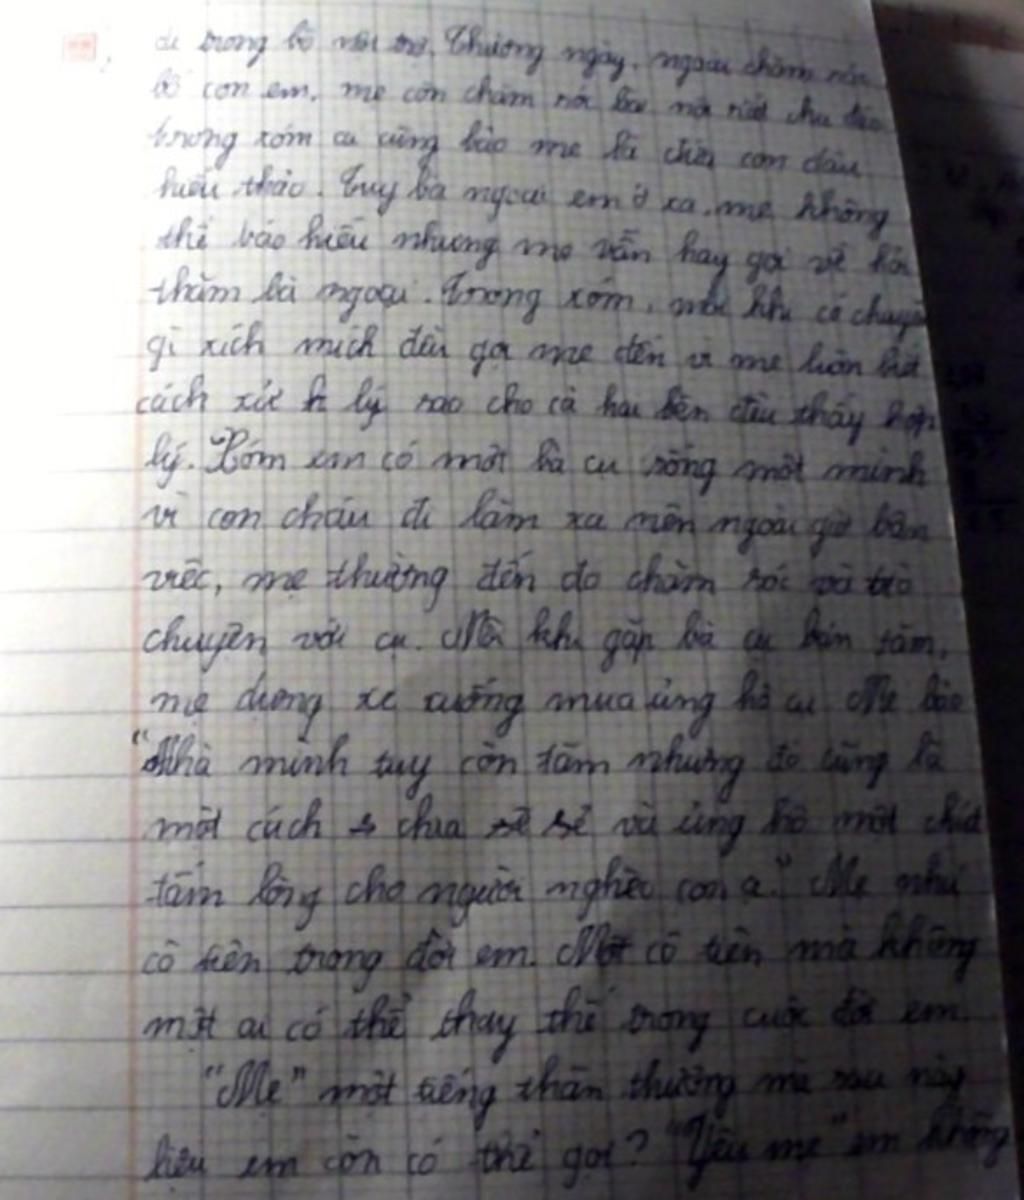 đi trong bộ nội trợ. Thường ngày, ngoài chăm sóc
bố con em, mẹ còn chăm sóc bà nội rất chu đáo
trong xóm ai cũng bảo mẹ là đứa con dâu
hiếu thảo. Tuy bà ngoại em ở xa, mẹ không
thể báo hiếu nhưng mẹ vẫn hay gọi về hỏi
thăm bà ngoại. Trong xóm, mỗi khi có chuyện
gì xích mích đều gọi mẹ đến vì mẹ luôn biết
cách xử lý sao cho cả hai bên đều thấy hợp
lý. Xóm em có một bà cụ sống một mình
vì con cháu đi làm xa nên ngoài giờ bận
việc, mẹ thường đến đo chăm sóc và trò
chuyện với cụ. Mỗi khi gặp bà cụ bán tăm,
mẹ dựng xe xuống mua ủng hộ cụ Mẹ bảo
"Nhà mình tuy còn tăm nhưng đó cũng là
một cách chia sẻ và ủng hộ một chút
tấm lòng cho người nghèo con ạ." Mẹ như
cô tiên trong đời em. Một cô tiên mà không
một ai có thể thay thế trong cuộc đời em.
"Mẹ" một tiếng thân thương mà sau này
liệu em còn có thể gọi? "Yêu mẹ" em không